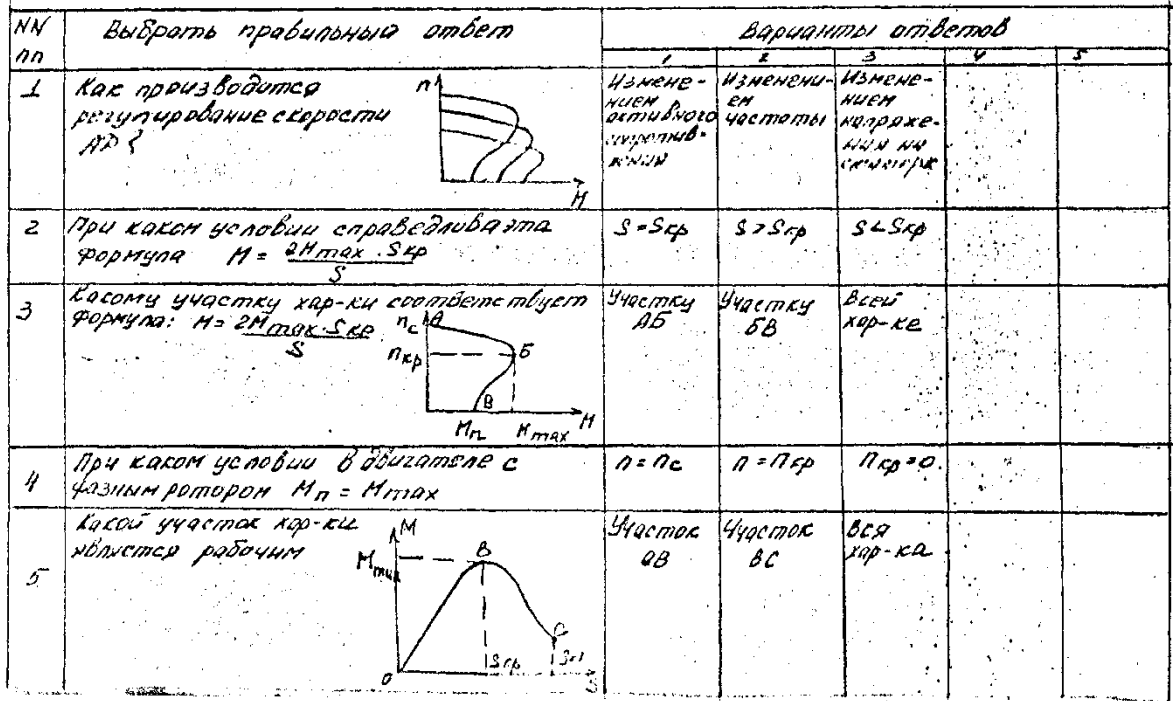 NN Выбрать правильный ответ Варианты ответов
пп 1 2 3 4 5
1 Как производится регулирование скорости АД
n
M
Изменением активного сопротивления
Изменением частоты
Изменением напряжения на
2 При каком условии справедлива эта
формула M = 2Mmax · Sкр / S
S = Sкр
S > Sкр
S < Sкр
3 Какому участку хар-ки соответствует
формула: M = 2Mmax · Sкр / S
nс
nкр
Б
В
Mп Mmax M
Участку АБ
Участку БВ
Всей хар-ке
4 При каком условии в двигателе с
фазным ротором Mп = Mmax
n = nс
n = nкр
nкр = 0
5 Какой участок хар-ки
является рабочим
M
B
C
0 Sкр
Участок 0В
Участок ВС
Вся хар-ка